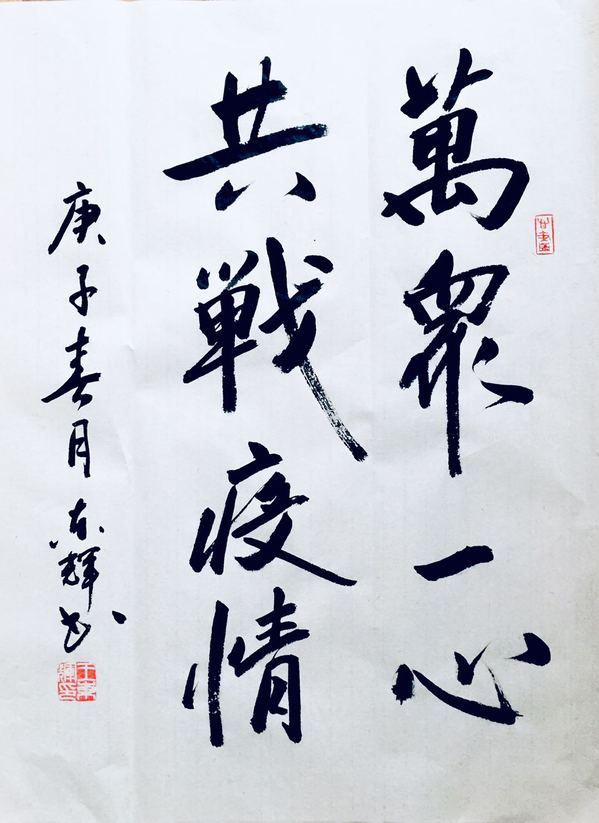 萬眾一心
共戰疫情
庚子春月东辉书